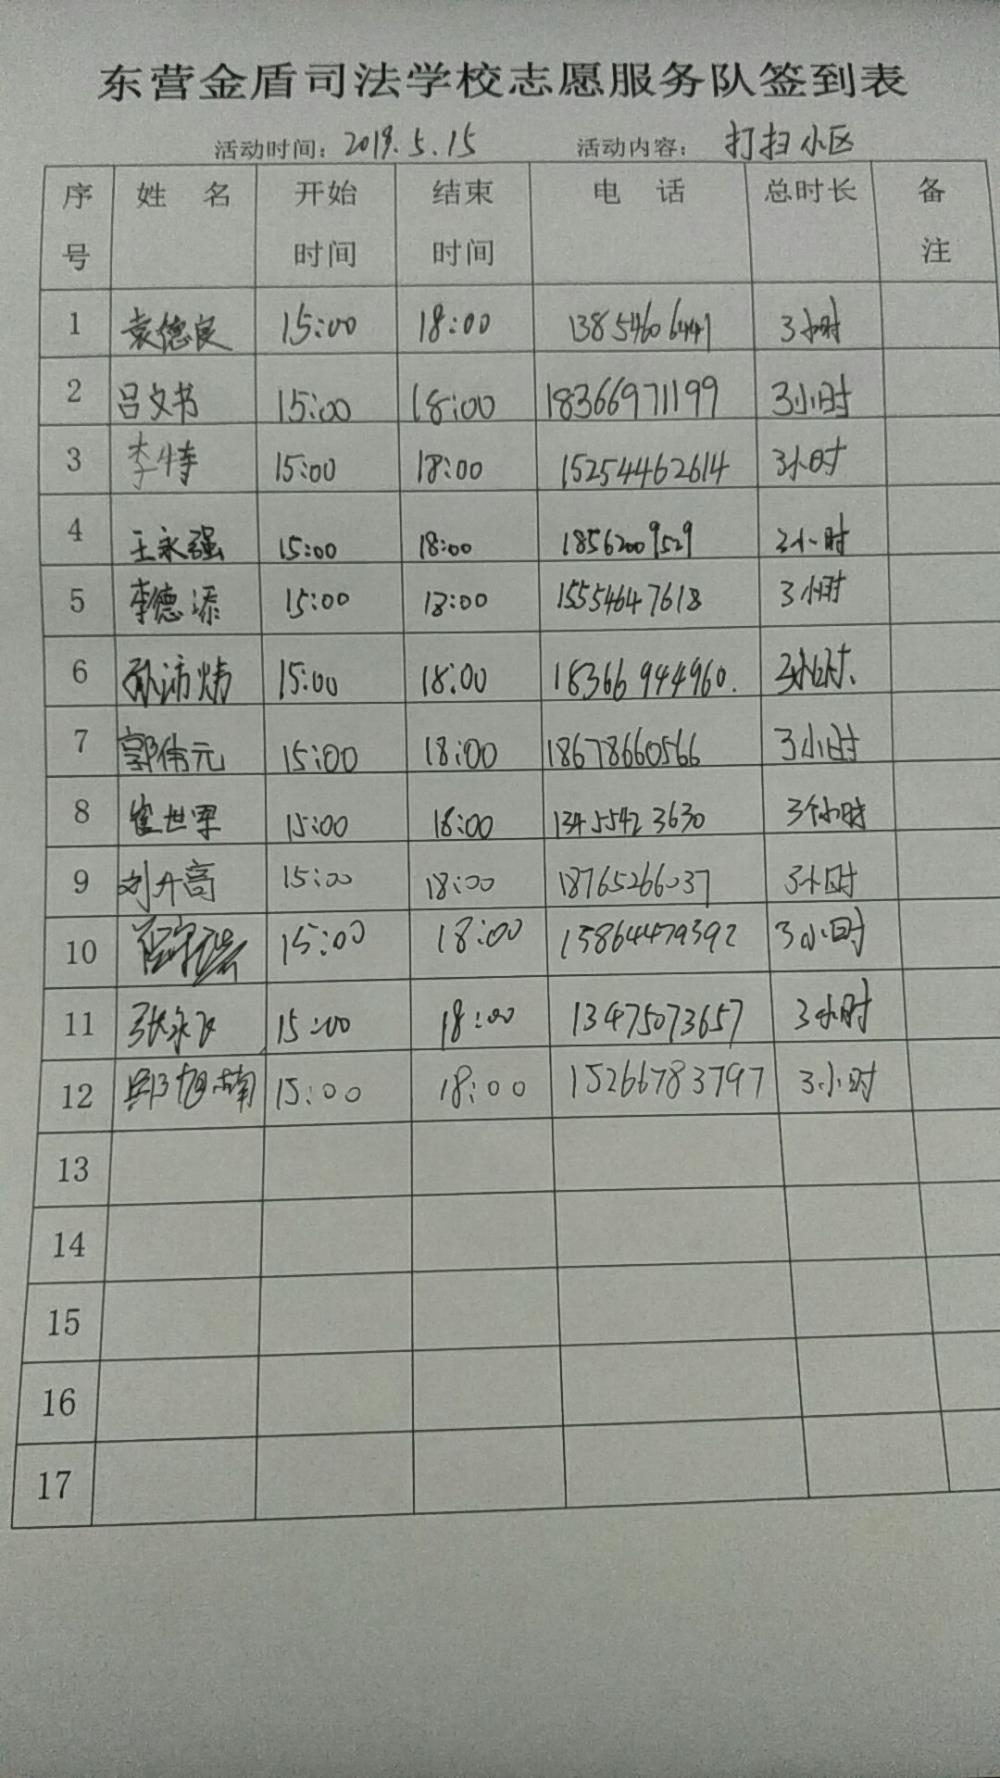 东营金盾司法学校志愿服务队签到表
活动时间：2019.5.15 活动内容：打扫小区
序号 姓名 开始时间 结束时间 电话 总时长 备注
1 袁德良 15:00 18:00 13854606441 3小时
2 吕文书 15:00 18:00 18366971199 3小时
3 李特 15:00 18:00 15254462614 3小时
4 王永强 15:00 18:00 18562009529 3小时
5 李德添 15:00 18:00 15554647618 3小时
6 孙沛炜 15:00 18:00 18366944960. 3小时.
7 郭伟元 15:00 18:00 18678660566 3小时
8 崔世军 15:00 18:00 13455423630 3个小时
9 刘升高 15:00 18:00 18765266037 3小时
10 15:00 18:00 15864479392 3小时
11 张永飞 15:00 18:00 13475073657 3小时
12 旭楠 15:00 18:00 15266783797 3小时
13
14
15
16
17